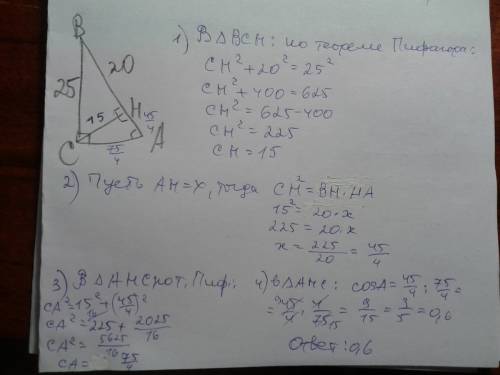 B
25
20
15
H
45/4
C
75/4
A
1) В ΔBCH: по теореме Пифагора:
CH² + 20² = 25²
CH² + 400 = 625
CH² = 625 - 400
CH² = 225
CH = 15
2) Пусть AH = x, тогда CH² = BH · HA
15² = 20 · x
225 = 20 · x
x = 225/20 = 45/4
3) В ΔAHC по т. Пиф:
CA² = 15² + (45/4)²
CA² = 225 + 2025/16
CA² = 5625/16
CA = 75/4
4) В ΔAHC: cosA = 45/4 : 75/4 =
= 45/4 · 4/75 = 9/15 = 3/5 = 0,6
Ответ: 0,6